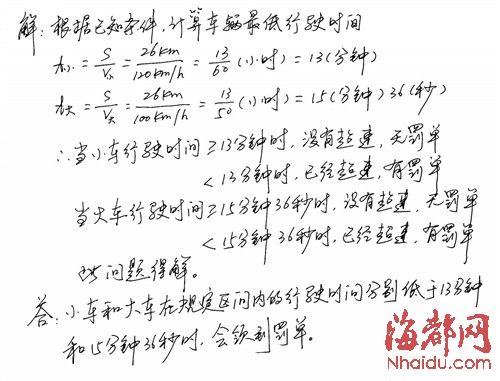 解：根据已知条件，计算车辆最低行驶时间
t小 = S/V小 = 26km/120km/h = 13/60 (小时) = 13(分钟)
t大 = S/V大 = 26km/100km/h = 13/50 (小时) = 15(分钟) 36(秒)
∴当小车行驶时间 ≥13分钟时，没有超速，无罚单
<13分钟时，已经超速，有罚单
当大车行驶时间≥15分钟36秒时，没有超速，无罚单
<15分钟36秒时，已经超速，有罚单
此问题得解。
答：小车和大车在规定区间内的行驶时间分别低于13分钟
和15分钟36秒时，会领到罚单。
海都网
Nhaidu.com